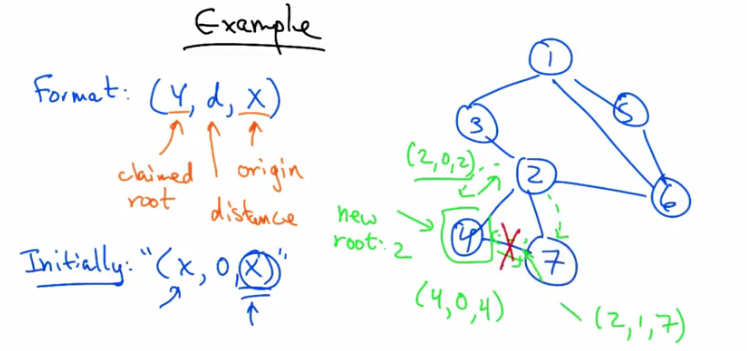 Example
Format: (Y, d, X)
claimed
root
distance
origin
Initially: "(x, 0, x)"
1
3
5
(2,0,2)
2
6
new
root: 2
4
X
7
(4,0,4)
(2,1,7)